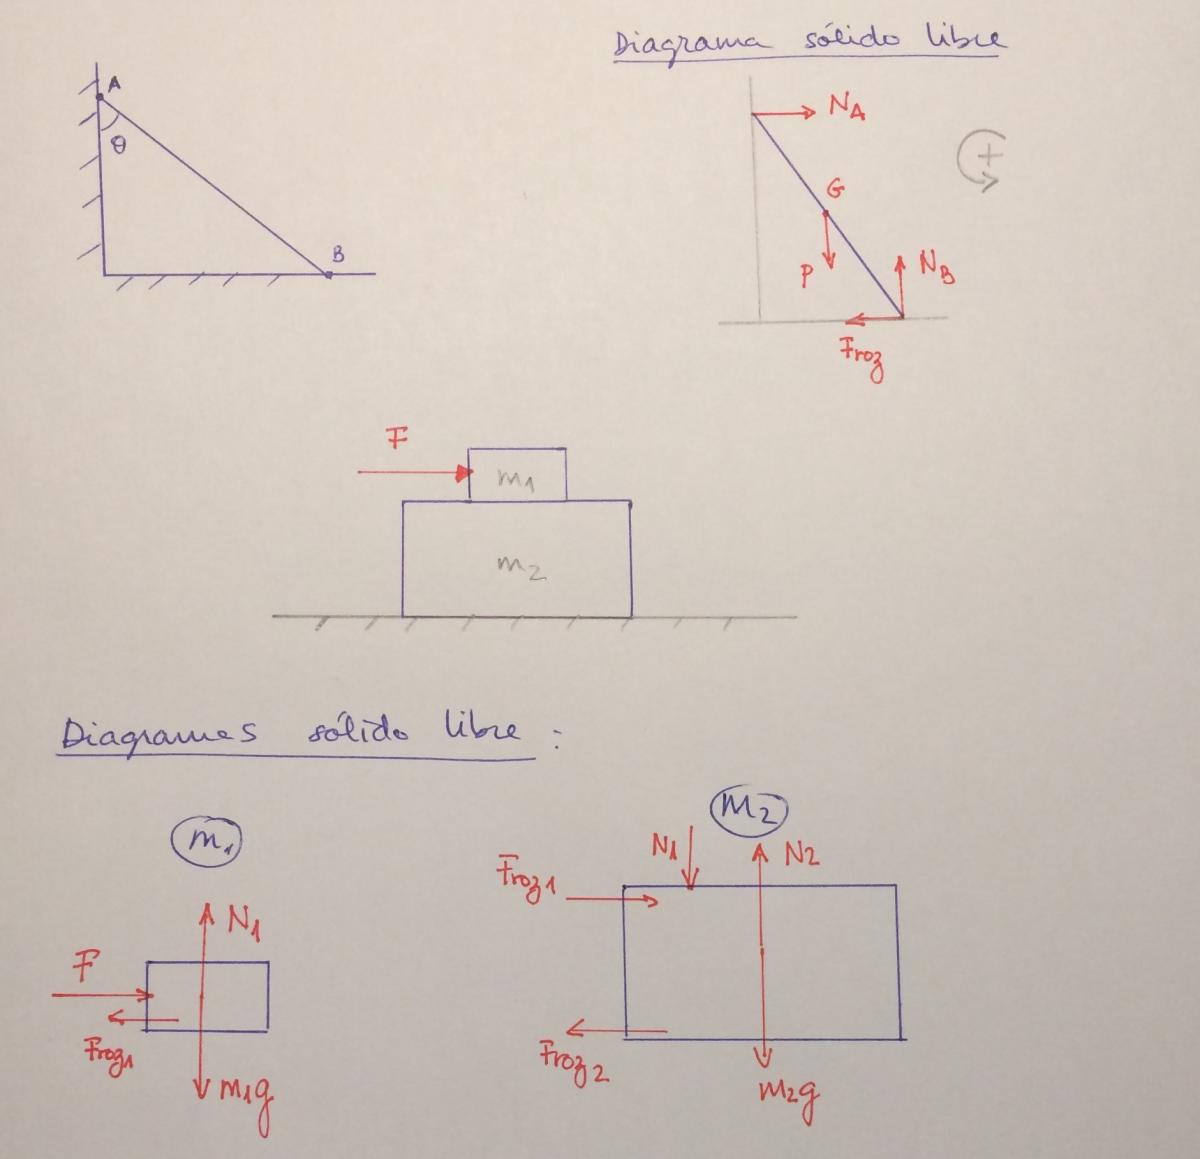 Diagrama sólido libre
A
θ
B
NA
G
P
NB
Froz
+
F
m1
m2
Diagramas sólido libre :
m1
N1
F
Froz1
m1g
M2
N1
N2
Froz1
Froz2
m2g